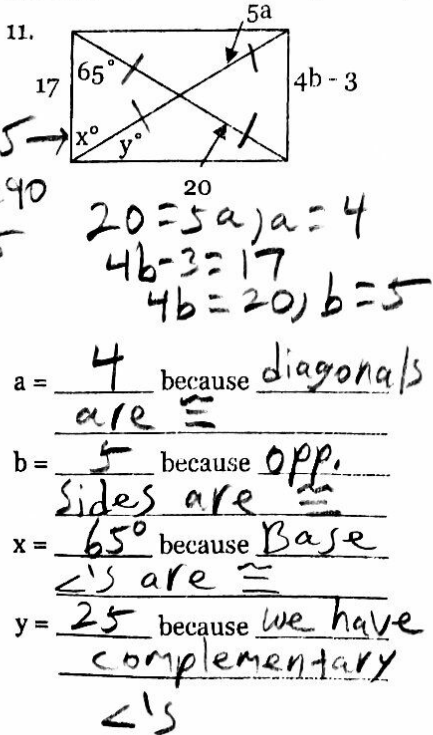 11.
5a
65°
17
4b - 3
5
x°
y°
90
20
20 = 5a, a = 4
4b-3 = 17
4b = 20, b = 5
a = 4 because diagonals
are ≅
b = 5 because opp.
sides are ≅
x = 65° because Base
∠'s are ≅
y = 25 because we have
complementary
∠'s